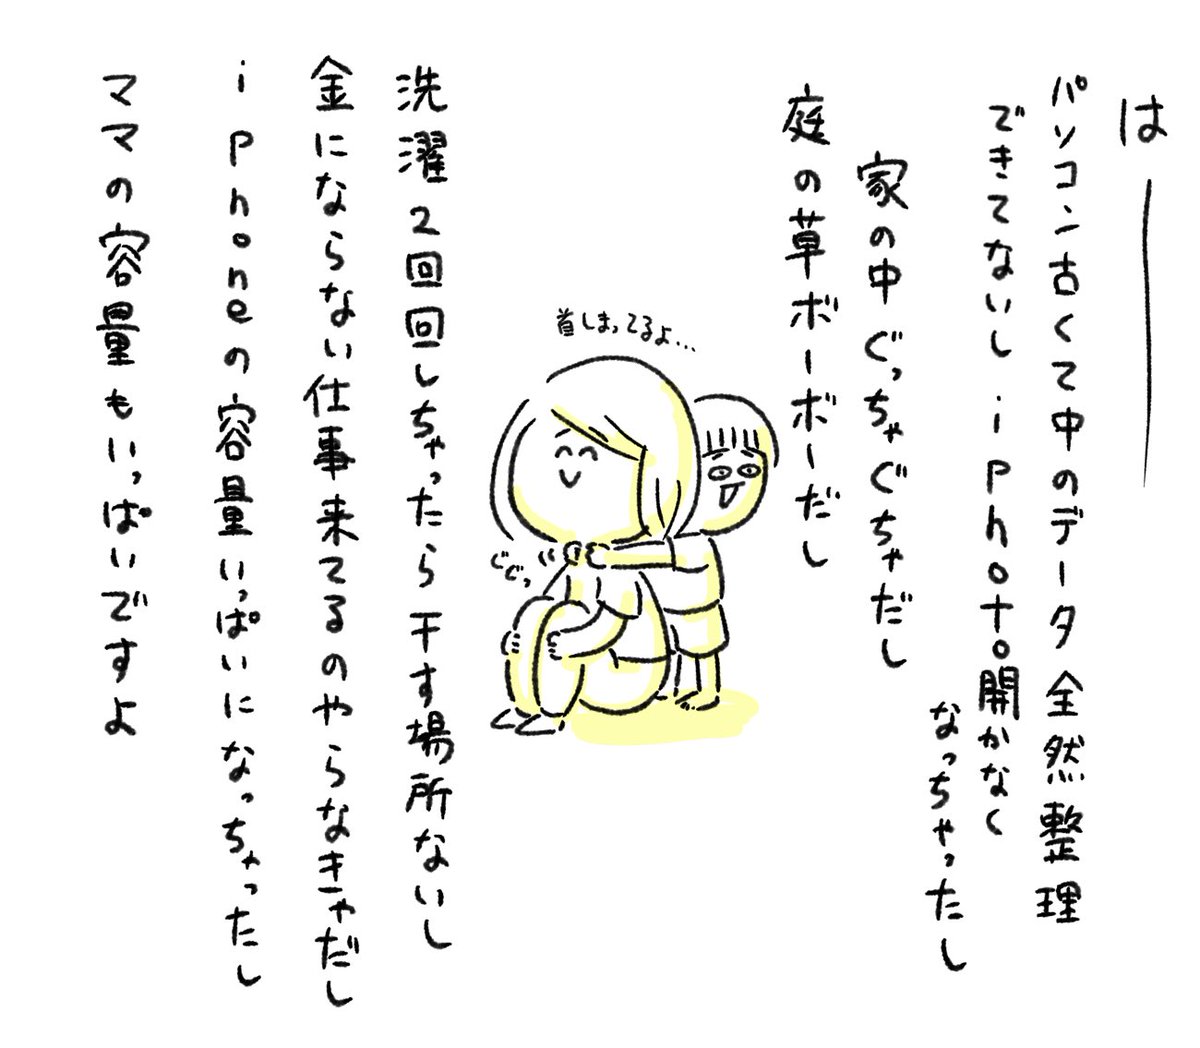 は――
パソコン古くて中のデータ全然整理
できてないしiPhoto開かなく
なっちゃったし
家の中ぐっちゃぐちゃだし
庭の草ボーボーだし
首しまってるよ…
ぐぐっ
洗濯2回回しちゃったら干す場所ないし
金にならない仕事来てるのやらなきゃだし
iPhoneの容量いっぱいになっちゃったし
ママの容量もいっぱいですよ